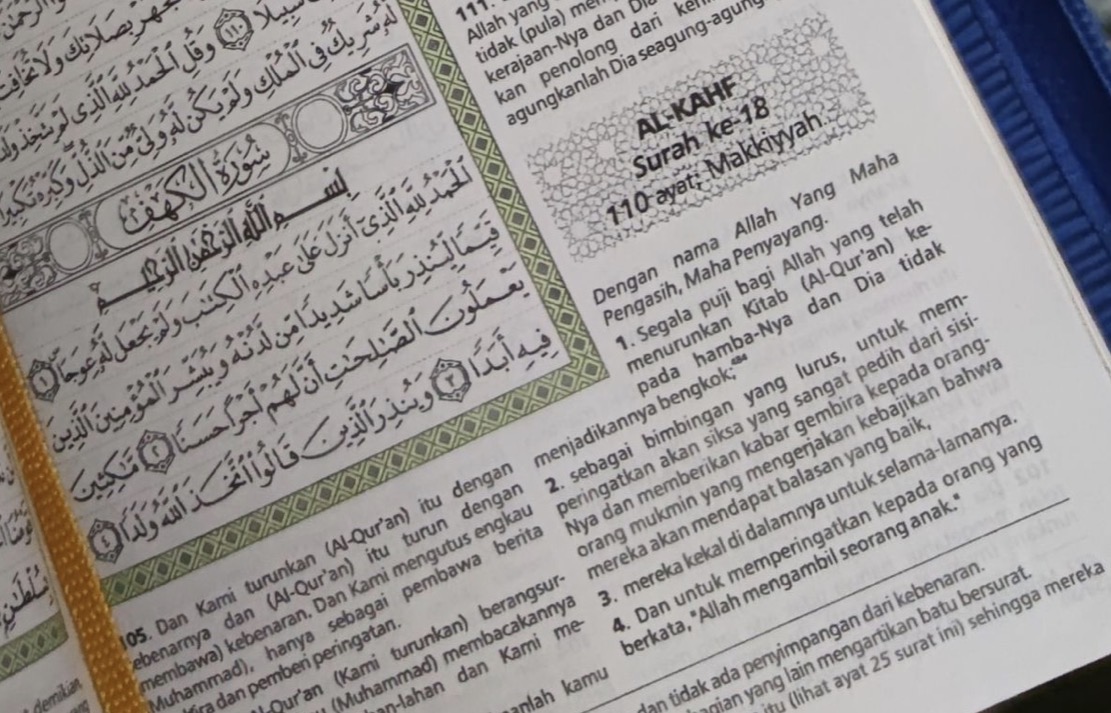 وَقُلِ ٱلْحَمْدُ لِلَّهِ ٱلَّذِى لَمْ يَتَّخِذْ
لَّهُۥ شَرِيكٌ فِى ٱلْمُلْكِ وَلَمْ يَكُن لَّهُۥ وَلِىٌّ مِّنَ ٱلذُّلِّ وَكَبِّرْهُ تَكْبِيرًا
سُورَةُ الْكَهْفِ
بِسْمِ ٱللَّهِ ٱلرَّحْمَٰنِ ٱلرَّحِيمِ
ٱلْحَمْدُ لِلَّهِ ٱلَّذِىٓ أَنزَلَ عَلَىٰ عَبْدِهِ ٱلْكِتَٰبَ وَلَمْ يَجْعَل لَّهُۥ عِوَجَا ١
قَيِّمًا لِّيُنذِرَ بَأْسًا شَدِيدًا مِّن لَّدُنْهُ وَيُبَشِّرَ ٱلْمُؤْمِنِينَ ٱلَّذِينَ
يَعْمَلُونَ ٱلصَّٰلِحَٰتِ أَنَّ لَهُمْ أَجْرًا حَسَنًا ٢ مَّٰكِثِينَ
فِيهِ أَبَدًا ٣ وَيُنذِرَ ٱلَّذِينَ قَالُوا۟ ٱتَّخَذَ ٱللَّهُ وَلَدًا ٤
105. Dan Kami turunkan (Al-Qur'an) itu dengan
ebenarnya dan (Al-Qur'an) itu turun dengan
membawa) kebenaran. Dan Kami mengutus engkau
Muhammad), hanya sebagai pembawa berita
ira dan pemberi peringatan.
l-Qur'an (Kami turunkan) berangsur-
(Muhammad) membacakannya
an-lahan dan Kami me-
anlah kamu
111.
Allah yang
tidak (pula) mem
kerajaan-Nya dan Dia
kan penolong dari
agungkanlah Dia seagung-agung
AL-KAHF
Surah ke-18
110 ayat; Makkiyyah.
Dengan nama Allah Yang Maha
Pengasih, Maha Penyayang.
1. Segala puji bagi Allah yang telah
menurunkan Kitab (Al-Qur'an) ke-
pada hamba-Nya dan Dia tidak
menjadikannya bengkok;⁴⁸⁴
2. sebagai bimbingan yang lurus, untuk mem-
peringatkan akan siksa yang sangat pedih dari sisi-
Nya dan memberikan kabar gembira kepada orang-
orang mukmin yang mengerjakan kebajikan bahwa
mereka akan mendapat balasan yang baik,
3. mereka kekal di dalamnya untuk selama-lamanya.
4. Dan untuk memperingatkan kepada orang yang
berkata, "Allah mengambil seorang anak."
dan tidak ada penyimpangan dari kebenaran.
agian yang lain mengartikan batu bersurat.
itu (lihat ayat 25 surat ini) sehingga mereka